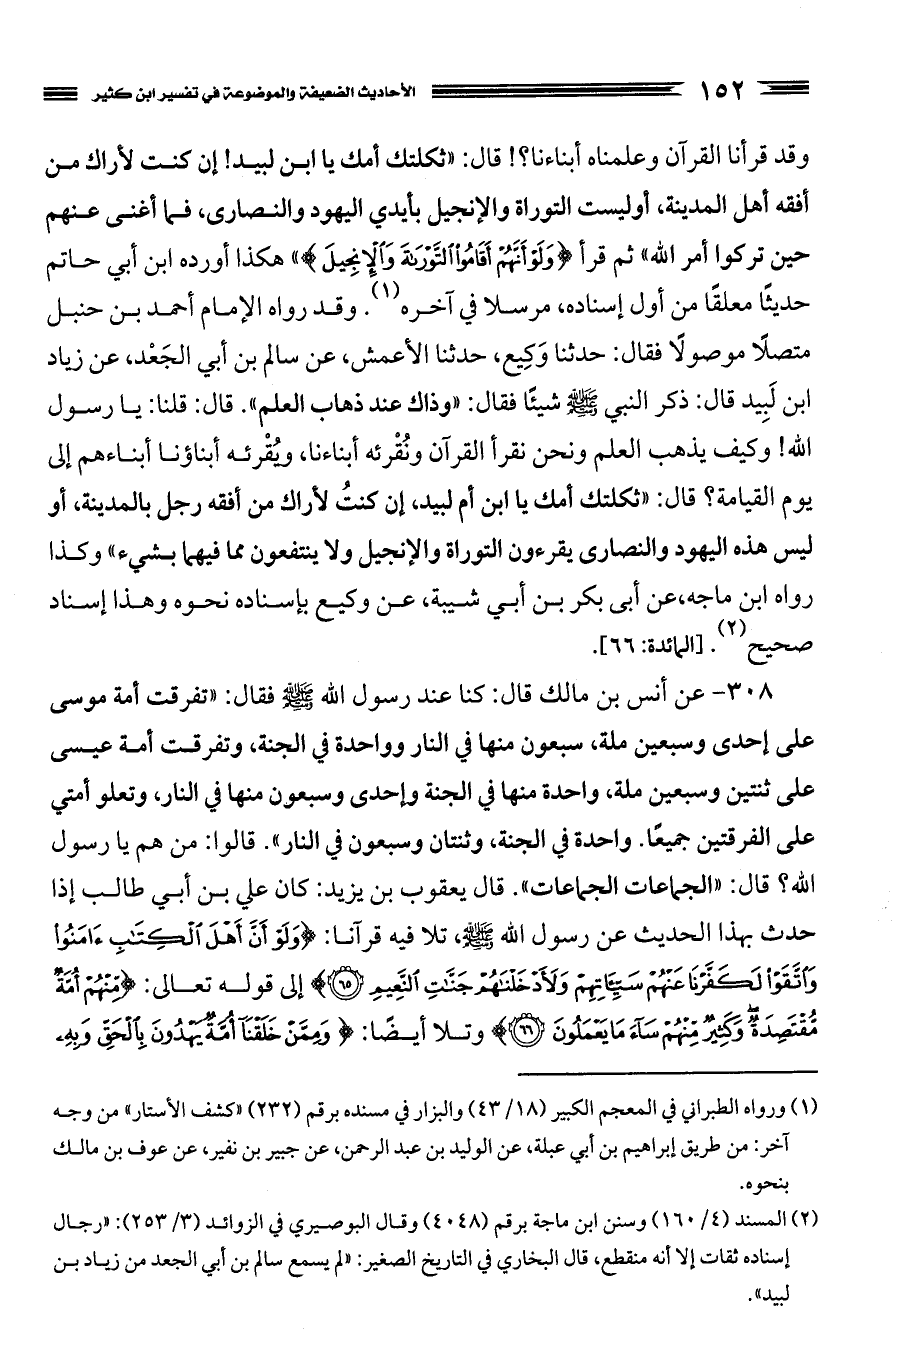 ١٥٢ الأحاديث الضعيفة والموضوعة في تفسير ابن كثير
وقد قرأنا القرآن وعلمناه أبناءنا؟! قال: «ثكلتك أمك يا ابن لبيد! إن كنت لأراك من
أفقه أهل المدينة، أوليست التوراة والإنجيل بأيدي اليهود والنصارى، فما أغنى عنهم
حين تركوا أمر الله» ثم قرأ ﴿وَلَوْ أَنَّهُمْ أَقَامُوا التَّوْرَىٰةَ وَٱلْإِنجِيلَ﴾» هكذا أورده ابن أبي حاتم
حديثًا معلقًا من أول إسناده، مرسلا في آخره(١). وقد رواه الإمام أحمد بن حنبل
متصلًا موصولًا فقال: حدثنا وَكِيع، حدثنا الأعمش، عن سالم بن أبي الجَعْد، عن زياد
ابن لَبِيد قال: ذكر النبي ﷺ شيئًا فقال: «وذاك عند ذهاب العلم». قال: قلنا: يا رسول
الله! وكيف يذهب العلم ونحن نقرأ القرآن ونُقْرئه أبناءنا، ويُقْرئه أبناؤنا أبناءهم إلى
يوم القيامة؟ قال: «ثكلتك أمك يا ابن أم لبيد، إن كنتُ لأراك من أفقه رجل بالمدينة، أو
ليس هذه اليهود والنصارى يقرءون التوراة والإنجيل ولا ينتفعون مما فيهما بشيء» وكذا
رواه ابن ماجه،عن أبى بكر بن أبي شيبة، عن وكيع بإسناده نحوه وهذا إسناد
صحيح(٢). [المائدة: ٦٦].
٣٠٨- عن أنس بن مالك قال: كنا عند رسول الله ﷺ فقال: «تفرقت أمة موسى
على إحدى وسبعين ملة، سبعون منها في النار وواحدة في الجنة، وتفرقت أمة عيسى
على ثنتين وسبعين ملة، واحدة منها في الجنة وإحدى وسبعون منها في النار، وتعلو أمتي
على الفرقتين جميعًا. واحدة في الجنة، وثنتان وسبعون في النار». قالوا: من هم يا رسول
الله؟ قال: «الجماعات الجماعات». قال يعقوب بن يزيد: كان علي بن أبي طالب إذا
حدث بهذا الحديث عن رسول الله ﷺ، تلا فيه قرآنا: ﴿وَلَوْ أَنَّ أَهْلَ ٱلْكِتَـٰبِ ءَامَنُوا۟
وَٱتَّقَوْا۟ لَكَفَّرْنَا عَنْهُمْ سَيِّـَٔاتِهِمْ وَلَأَدْخَلْنَـٰهُمْ جَنَّـٰتِ ٱلنَّعِيمِ ٦٥﴾ إلى قوله تعالى: ﴿مِّنْهُمْ أُمَّةٌ
مُّقْتَصِدَةٌ ۖ وَكَثِيرٌ مِّنْهُمْ سَآءَ مَا يَعْمَلُونَ ٦٦﴾ وتلا أيضًا: ﴿وَمِمَّنْ خَلَقْنَآ أُمَّةٌ يَهْدُونَ بِٱلْحَقِّ وَبِهِۦ
(١) ورواه الطبراني في المعجم الكبير (١٨/ ٤٣) والبزار في مسنده برقم (٢٣٢) «كشف الأستار» من وجه
آخر: من طريق إبراهيم بن أبي عبلة، عن الوليد بن عبد الرحمن، عن جبير بن نفير، عن عوف بن مالك
بنحوه.
(٢) المسند (٤/ ١٦٠) وسنن ابن ماجة برقم (٤٠٤٨) وقال البوصيري في الزوائد (٣/ ٢٥٣): «رجال
إسناده ثقات إلا أنه منقطع، قال البخاري في التاريخ الصغير: «لم يسمع سالم بن أبي الجعد من زياد بن
لبيد».